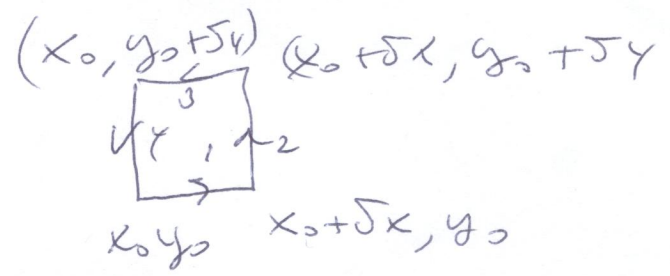 (x₀, y₀+δy) (x₀+δx, y₀+δy
3
4 1 2
x₀y₀ x₀+δx, y₀